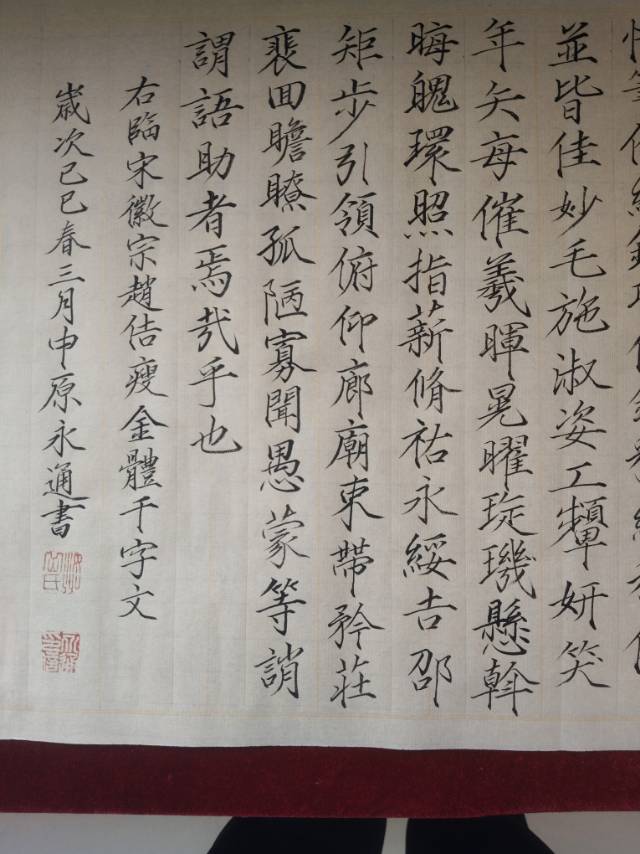 並皆佳妙毛施淑姿工顰妍笑
年矢每催羲暉晃曜琁璣懸斡
晦魄環照指薪脩祐永綏吉邵
矩步引領俯仰廊廟束帶矜莊
裴囬瞻瞭孤陋寡聞愚蒙等誚
謂語助者焉哉乎也
右臨宋徽宗趙佶瘦金體千字文
嵗次己巳春三月中原永通書